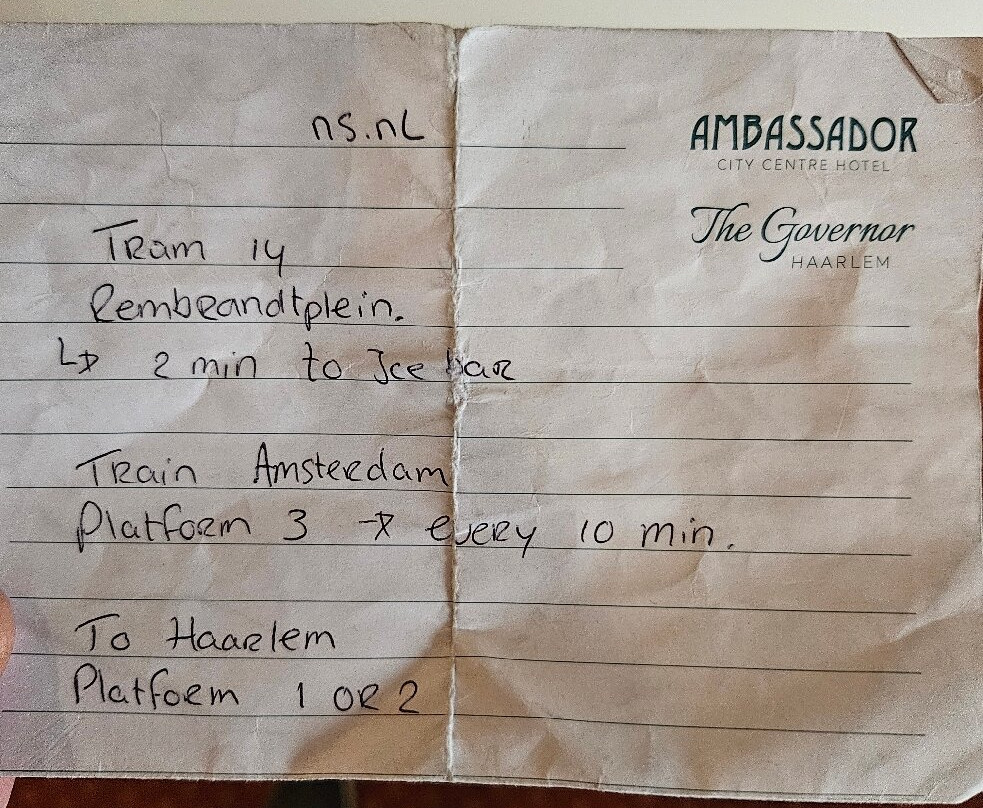 ns.nl
AMBASSADOR
CITY CENTRE HOTEL
The Governor
HAARLEM
Tram 14
Rembrandtplein.
↳ 2 min to Ice bar
Train Amsterdam
Platform 3 → every 10 min.
To Haarlem
Platform 1 OR 2